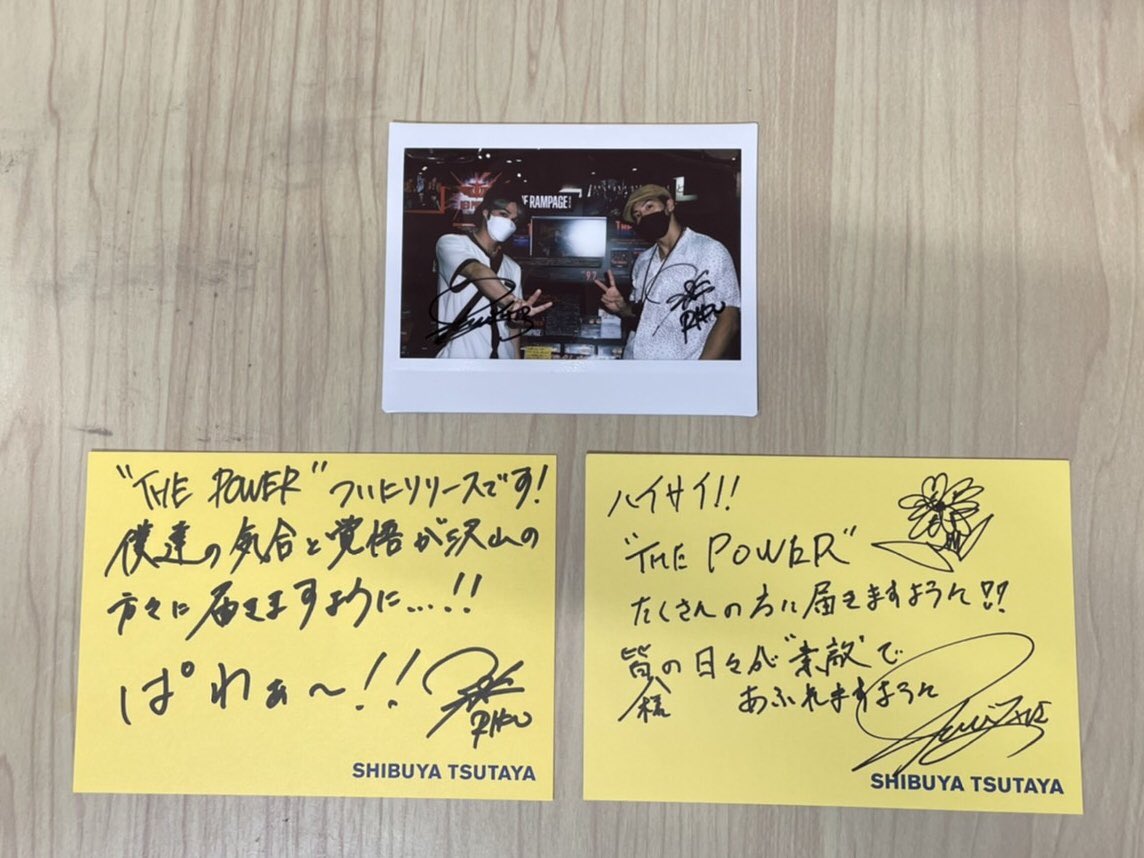 THE RAMPAGE
RIKU
"THE POWER" ついにリリースです!
僕達の気合と覚悟が沢山の
方々に届きますように…!!
ぱわぁ〜!!
RIKU
SHIBUYA TSUTAYA
ハイサイ!!
"THE POWER"
たくさんの方に届きますように!!
皆様の日々が"素敵"で
あふれますように
SHIBUYA TSUTAYA